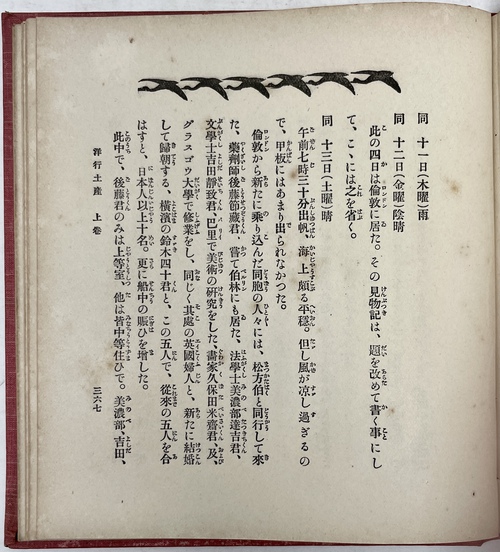 同 十一日(木曜)雨
同 十二日(金曜)陰晴
此の四日は倫敦に居た。その見物記は、題を改めて書く事にし
て、こゝには之を省く。
同 十三日(土曜)晴
午前七時三十分出帆、海上頗る平穏。但し風が涼し過ぎるの
で、甲板にはあまり出られなかつた。
倫敦から新たに乘り込んだ同胞の人々には、松方伯と同行して來
た、藥劑師後藤節藏君、嘗て伯林にも居た、法學士美濃部達吉君、
文學士吉田靜致君、巴里で美術の研究をした、畫家久保田米齋君、及、
グラスゴウ大學で修業をし、同じく其處の英國婦人と、新たに結婚
して歸朝する、橫濱の鈴木四十君と、この五人で、從來の五人を合
はすと、日本人以上十名。更に船中の賑ひを增した。
此中で、後藤君のみは上等室、他は皆中等住ひで。美濃部、吉田、
洋行土產 上卷
三六七